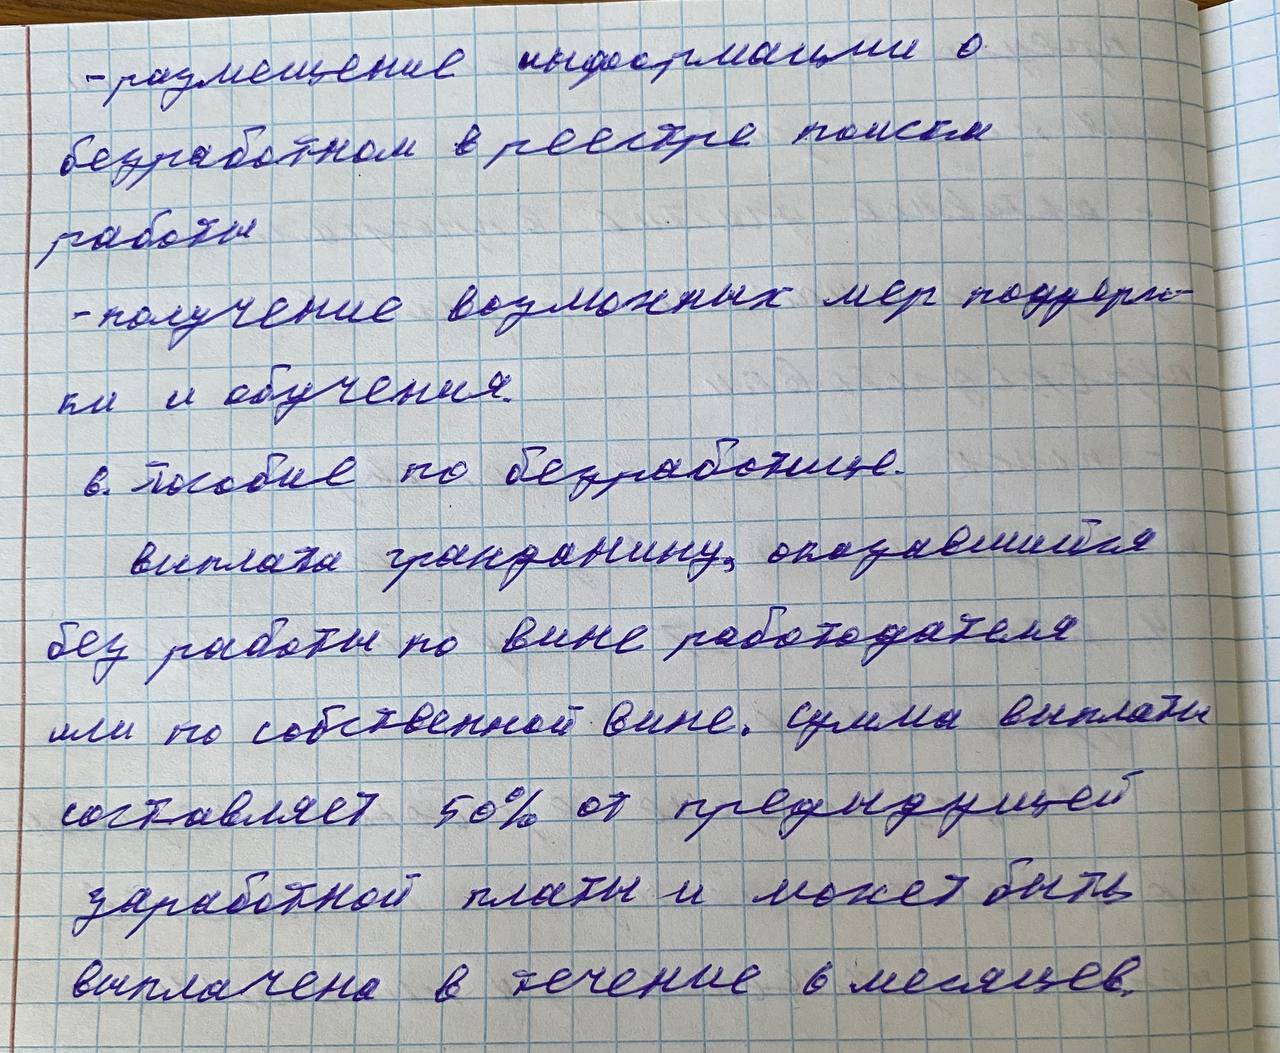 - размещение информации о
безработном в реестре поиска
работы
- получение возможных мер поддерж-
ки и обучения.
в. Пособие по безработице.
выплата гражданину, оказавшийся
без работы по вине работодателя
или по собственной вине. сумма выплаты
составляет 50% от предыдущей
заработной платы и может быть
выплачена в течение 6 месяцев.